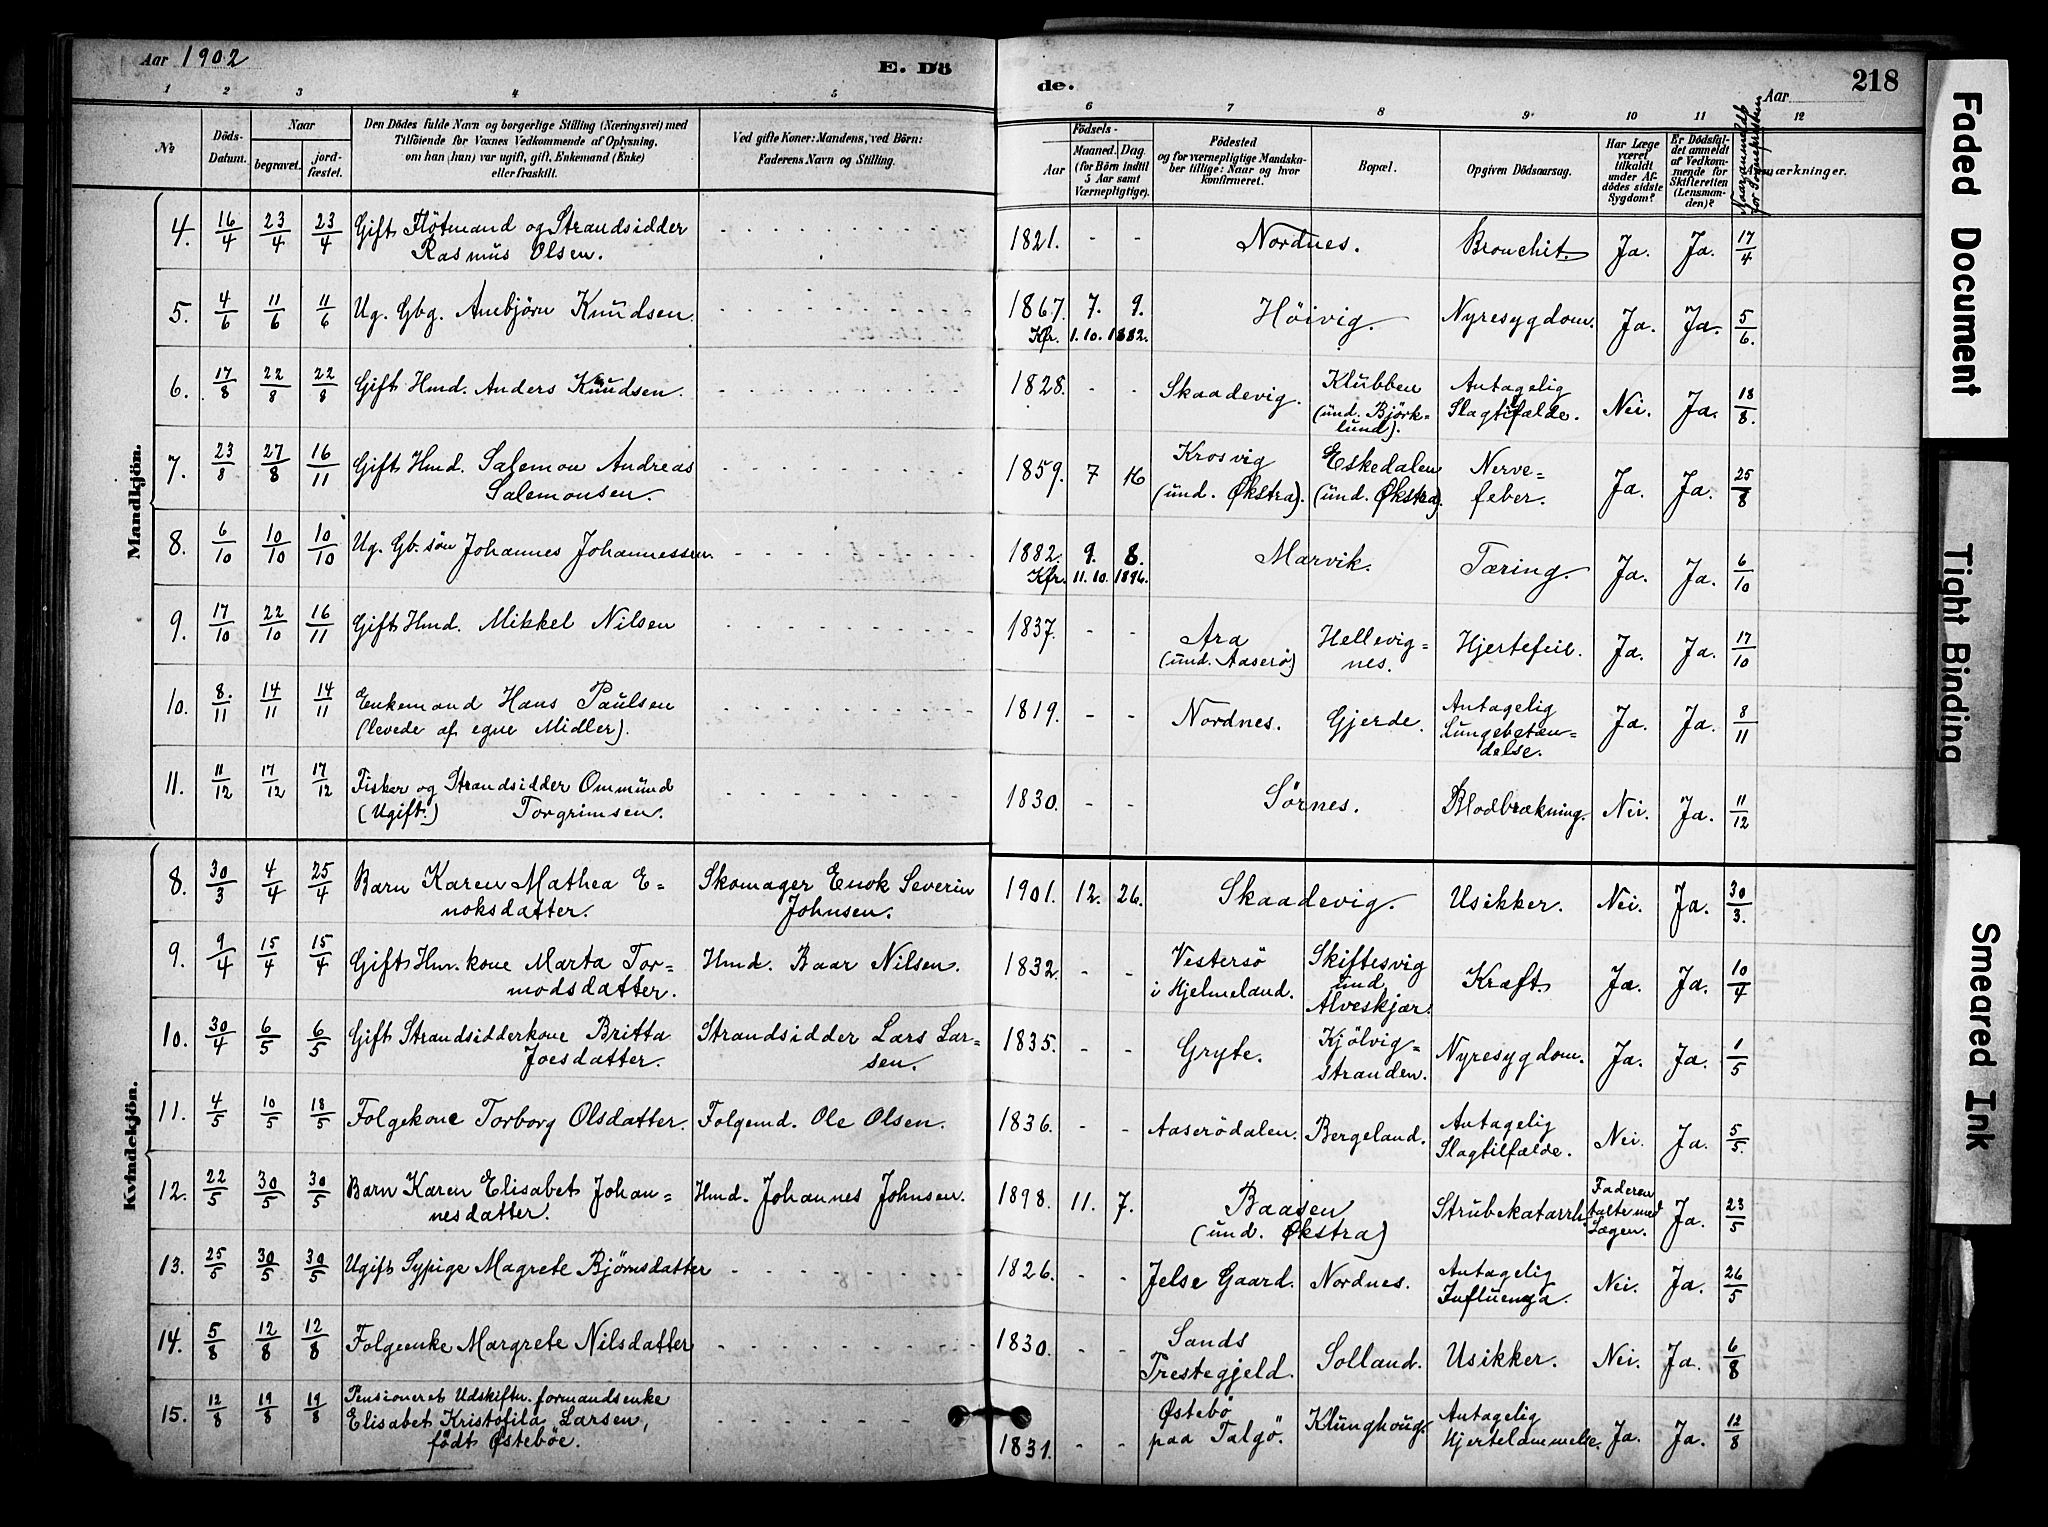 Aar 1902
E. Dö
de.
218
Aar
1 2 3 4 5 6 7 8 9 10 11 12
No
Döds-Datum.
Naar
begravet.
jord-fæstet.
Den Dödes fulde Navn og borgerlige Stilling (Næringsvei) med
Tilföiende for Voxnes Vedkommende af Oplysning.
om han (hun) var ugift, gift, Enkemand (Enke)
eller fraskilt.
Ved gifte Koner: Mandens, ved Börn:
Faderens Navn og Stilling.
Födsels-
Aar
Maaned. Dag.
(for Börn indtil
5 Aar samt
Værnepligtige).
Födested
og for værnepligtige Mandska-
ber tillige: Naar og hvor
konfirmeret.
Bopæl.
Opgiven Dödsaarsag.
Har Læge
været
tilkaldt
under Af-
dödes sidste
Sygdom?
Er Dödsfal-
det anmeldt
af Vedkom-
mende for
Skifteretten
(Lensman-
den)?
Anmærkninger.
Mandkjön.
4. 16/4 23/4 23/4 Gift Fløtmand og Strandsidder
Rasmus Olsen.
1821. - - Nordnes. Bronchit. Ja. Ja. 17/4
5. 4/6 11/6 11/6 Ug. Gbg. Anbjörn Knudsen.
1867. 7. 9. Höivig. Nyresygdom. Ja. Ja. 5/6
Kfr. 1.10.1882.
6. 17/8 22/8 22/8 Gift Hmd. Anders Knudsen.
1828. - - Skaadevig. Klubben
(und. Björk-
lund).
Antagelig
Slagtilfælde. Nei. Ja. 18/8
7. 23/8 27/8 16/11 Gift Hmd. Salemon Andreas
Salemonsen.
1859. 7 16 Krosvig
(und. Økstra). Eskedalen
(und. Økstra). Nerve-
feber. Ja. Ja. 25/8
8. 6/10 10/10 10/10 Ug. Gb. sön Johannes Johannessen.
1882. 9. 8. Marvik. Tæring. Ja. Ja. 6/10
Kfr. 11.10.1896.
9. 17/10 22/10 16/11 Gift Hmd. Mikkel Nilsen
1837. - - Ara
(und. Aaserö) Hellevig-
nes. Hjertefeil. Ja. Ja. 17/10
10. 8/11 14/11 14/11 Enkemand Hans Paulsen
(levede af egne Midler).
1819. - - Nordnes. Gjerde. Antagelig
Lungebetæn-
delse. Ja. Ja. 8/11
11. 11/12 17/12 17/12 Fisker og Strandsidder Ommund
(Ugift.) Torgrimsen.
1830. - - Sørnes. Blodbrækning. Nei. Ja. 11/12
Kvindekjön.
8. 30/3 4/4 25/4 Barn Karen Mathea E-
noksdatter.
Skomager Enok Severin
Johnsen.
1901. 12. 26. Skaadevig. Usikker. Nei. Ja. 30/3.
9. 9/4 15/4 15/4 Gift Hm. kone Marta Tor-
modsdatter.
Hmd. Baar Nilsen.
1832. - - Vestersö
i Hjelmeland. Skiftesvig
und.
Alveskjær. Kræft. Ja. Ja. 10/4
10. 30/4 6/5 6/5 Gift Strandsidderkone Britta
Joesdatter.
Strandsidder Lars Lar-
sen.
1835. - - Gryte. Kjölvig-
stranden. Nyresygdom. Ja. Ja. 1/5
11. 4/5 10/5 18/5 Folgekone Torborg Olsdatter.
Folgemd. Ole Olsen.
1836. - - Aaserödalen. Bergeland. Antagelig
Slagtilfælde. Nei. Ja. 5/5.
12. 22/5 30/5 30/5 Barn Karen Elisabet Johan-
nesdatter.
Hmd. Johannes Johnsen.
1898. 11. 7. Baasen
(und. Økstra) Strubekatarrh. Faderen
talte med
Lægen. Ja. 23/5
13. 25/5 30/5 30/5 Ugift Sypige Magrete Bjørnsdatter
1826. - - Jelse Gaard. Nordnes. Antagelig
Influenza. Nei. Ja. 26/5
14. 5/8 12/8 12/8 Folgeenke Margrete Nilsdatter
1830. - - Sands
Prestegjeld. Solland. Usikker. Nei. Ja. 6/8
15. 12/8 19/8 19/8 Pensioneret Udskiftn. formandsenke
Elisabet Kristofila Larsen,
födt Østeböe.
1831. - - Østebö
paa Talgö. Klunghoug. Antagelig
Hjertelammelse. Ja. Ja. 12/8
Faded Document
Tight Binding
Smeared Ink